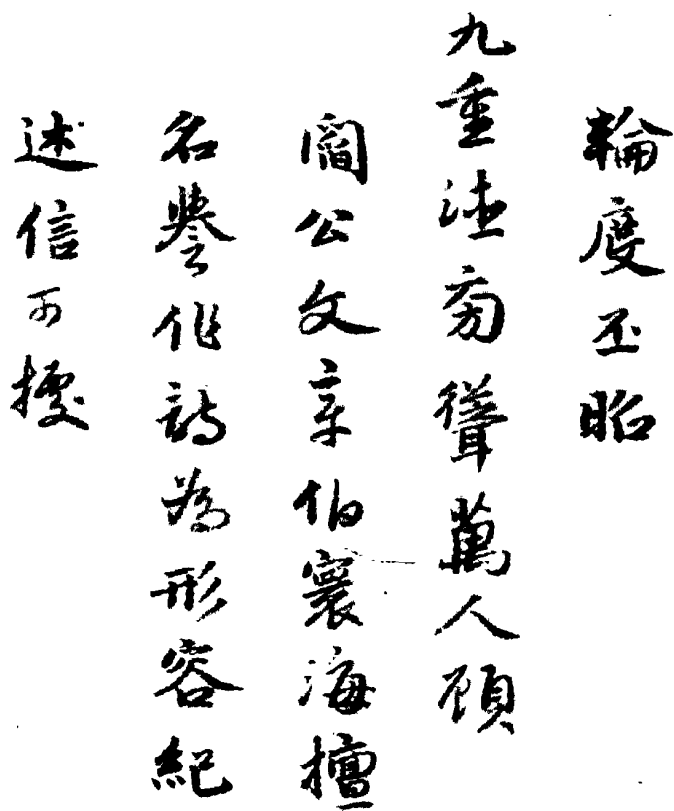 輪度丕昭
九重德旁聳萬人顧
閻公文章伯寰海擅
名譽作詩為形容紀
述信可據